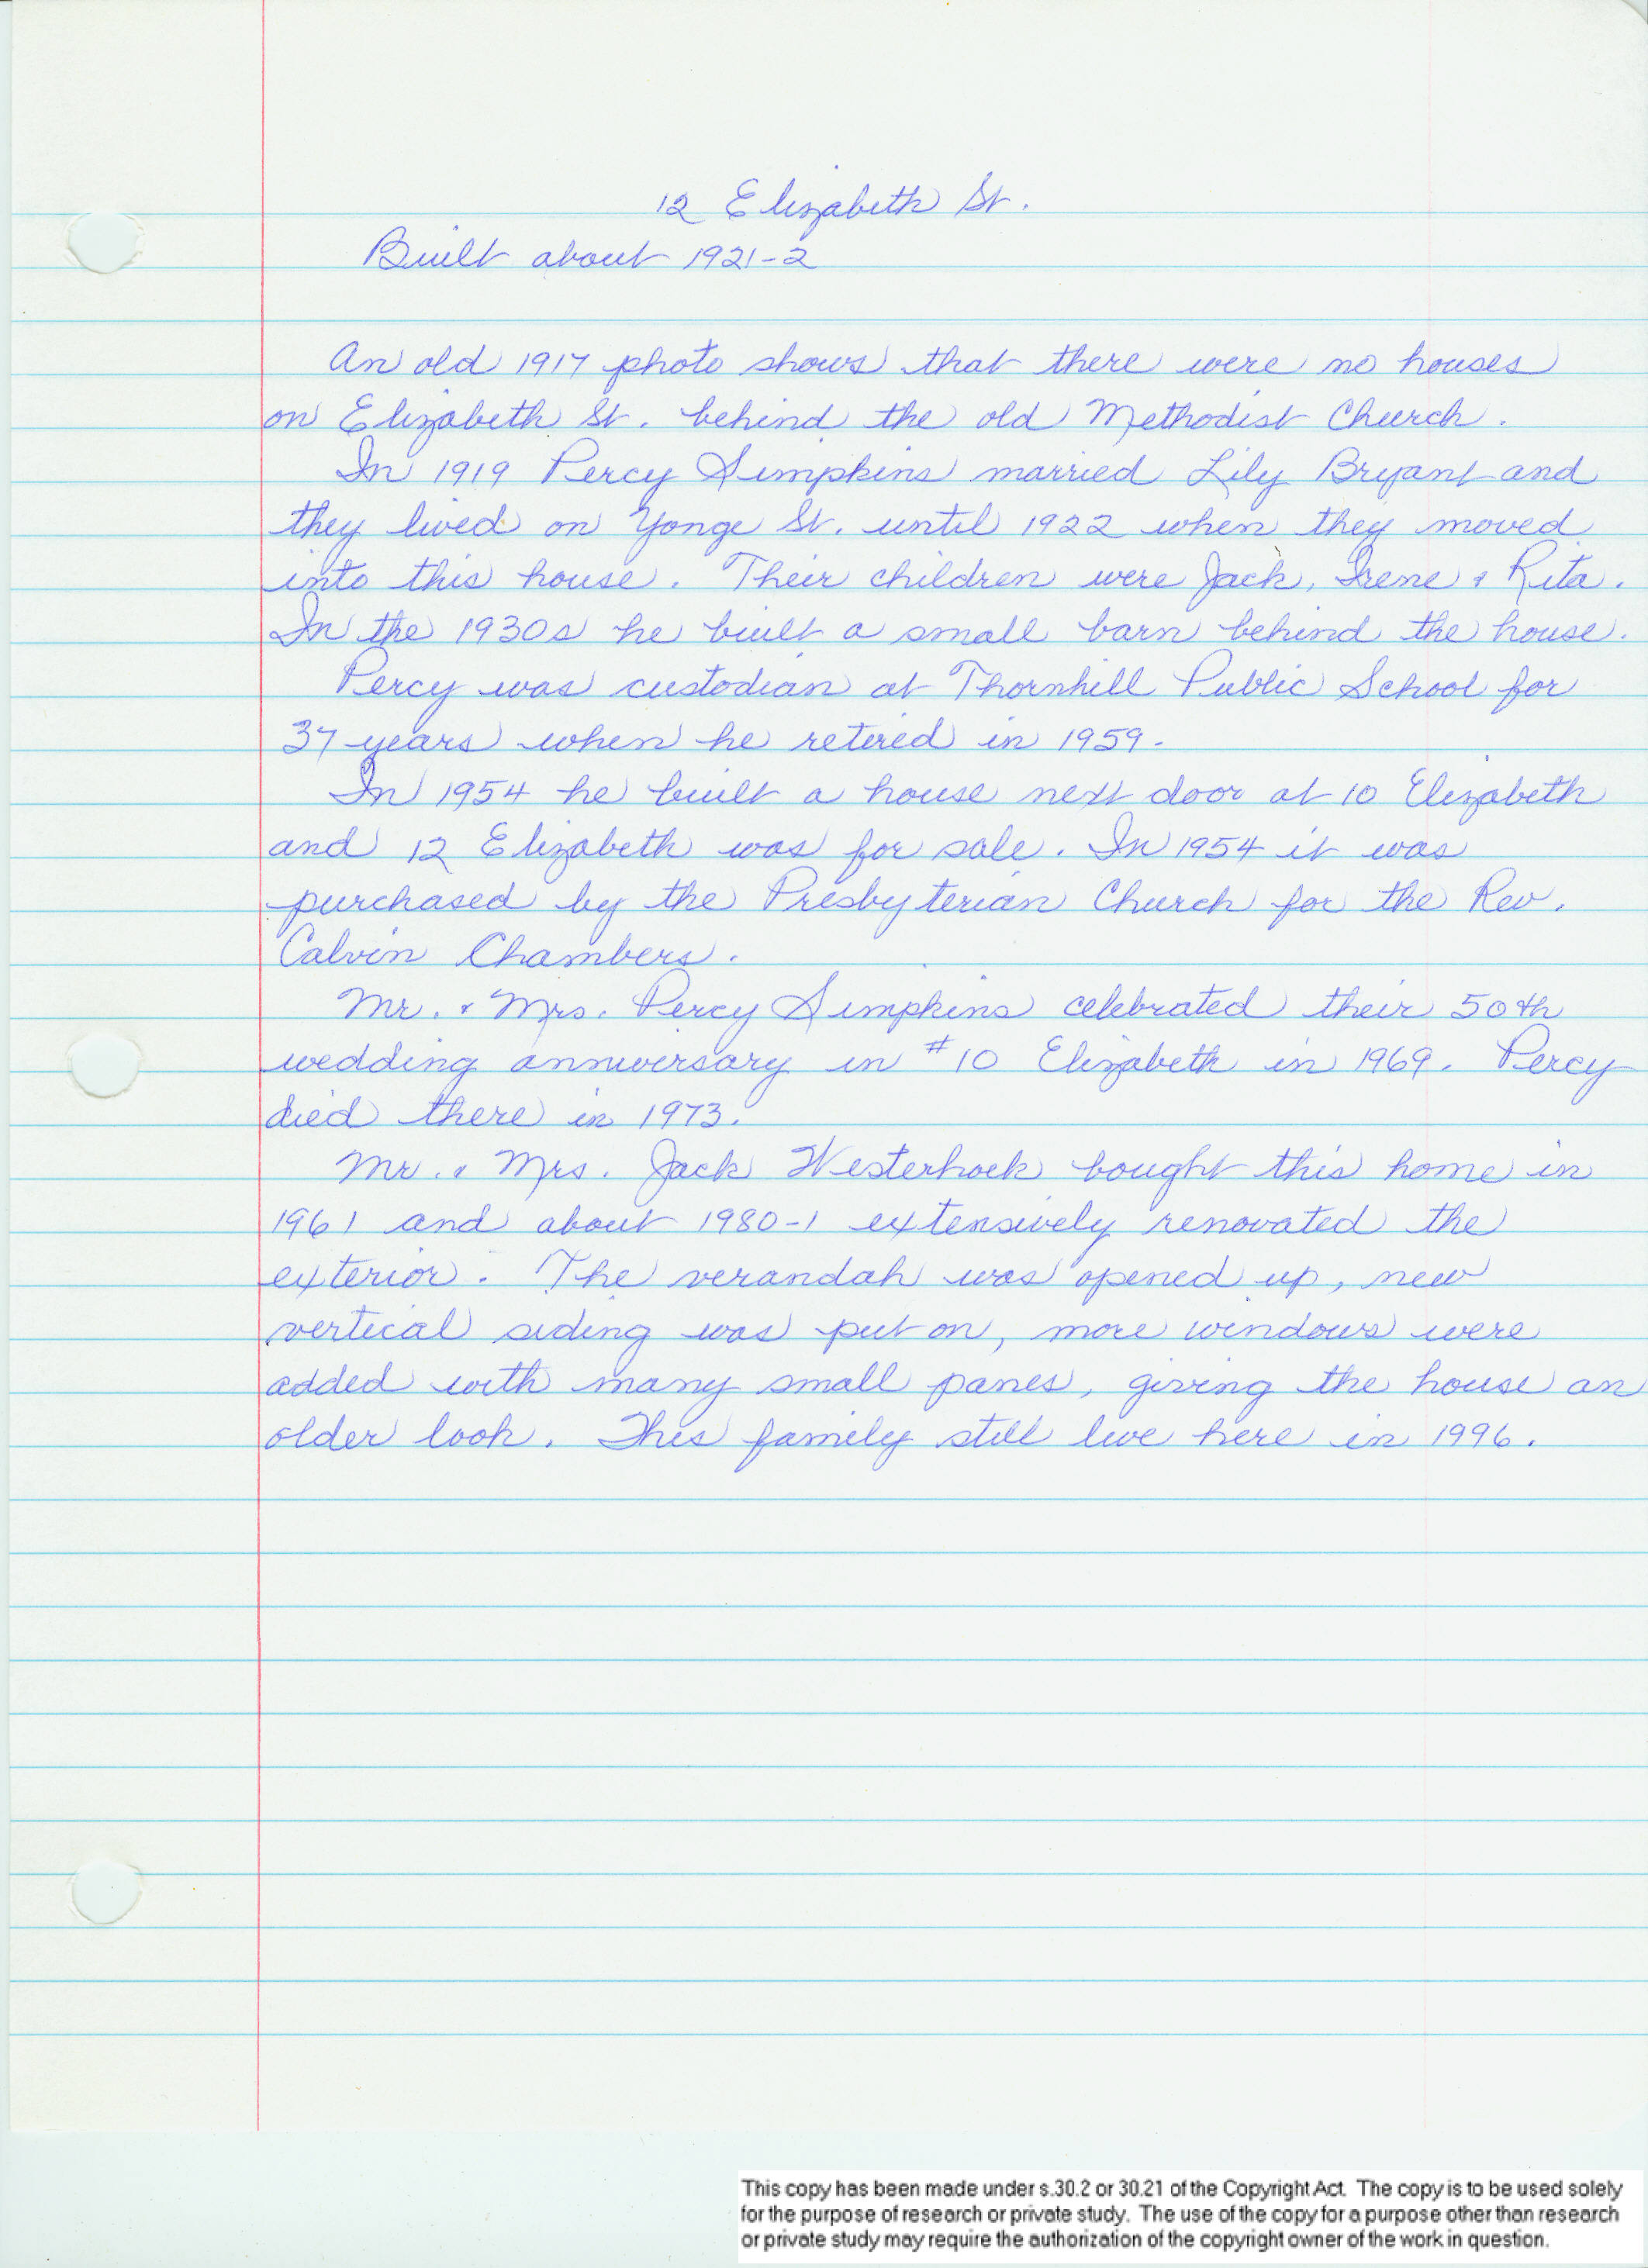 12 Elizabeth St.
Built about 1921-2
An old 1917 photo shows that there were no houses
on Elizabeth St. behind the old Methodist Church.
In 1919 Percy Simpkins married Lily Bryant and
they lived on Yonge St. until 1922 when they moved
into this house. Their children were Jack, Irene & Rita.
In the 1930s he built a small barn behind the house.
Percy was custodian at Thornhill Public School for
37 years when he retired in 1959.
In 1954 he built a house next door at 10 Elizabeth
and 12 Elizabeth was for sale. In 1954 it was
purchased by the Presbyterian Church for the Rev.
Calvin Chambers.
Mr. & Mrs. Percy Simpkins celebrated their 50th
wedding anniversary in #10 Elizabeth in 1969. Percy
died there in 1973.
Mr. & Mrs. Jack Westerhoek bought this home in
1961 and about 1980-1 extensively renovated the
exterior. The verandah was opened up, new
vertical siding was put on, more windows were
added with many small panes, giving the house an
older look. This family still live here in 1996.
This copy has been made under s.30.2 or 30.21 of the Copyright Act. The copy is to be used solely
for the purpose of research or private study. The use of the copy for a purpose other than research
or private study may require the authorization of the copyright owner of the work in question.